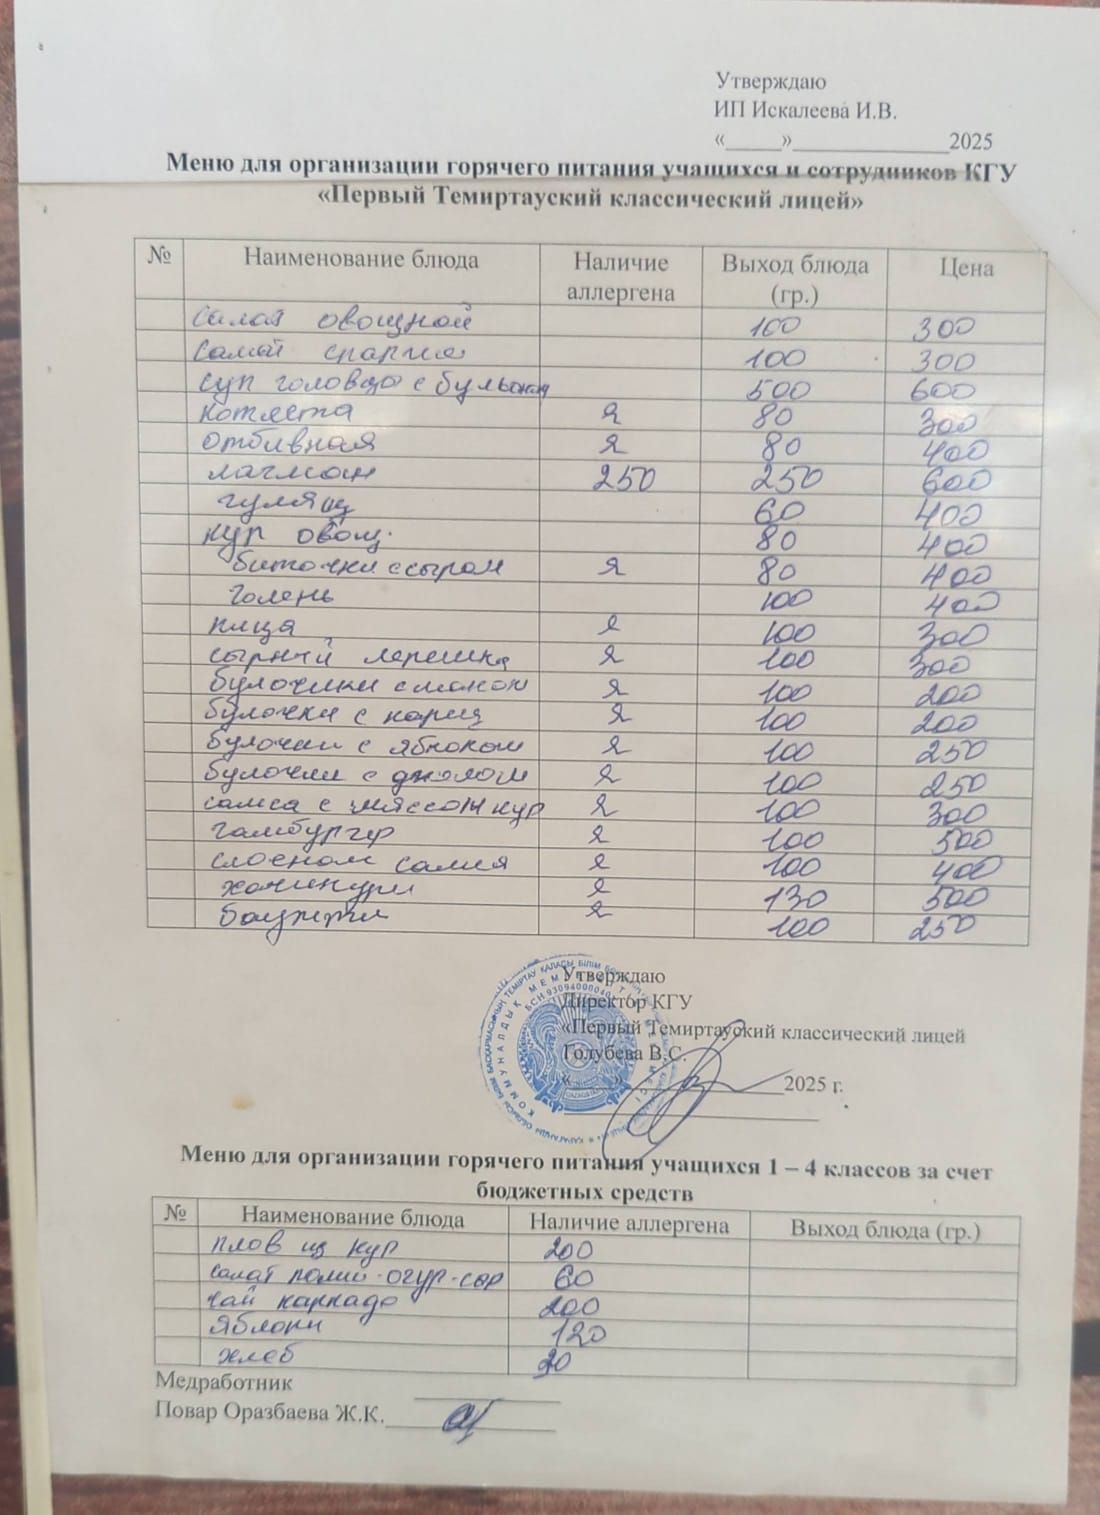 Утверждаю
ИП Искалеева И.В.
«_____»______________2025
Меню для организации горячего питания учащихся и сотрудников КГУ
«Первый Темиртауский классический лицей»
№ Наименование блюда Наличие аллергена Выход блюда (гр.) Цена
салат овощной 100 300
салат 100 300
суп с бульоном 500 600
котлета я 80 300
отбивная я 80 400
лагман 250 250 600
гуляш 60 400
кур овощ. 80 400
биточки с сыром я 80 400
голень 100 400
пица я 100 300
сырный лепешка я 100 300
булочки с маком я 100 200
булочки с кориц я 100 200
булочки с яблоком я 100 250
булочки с я 100 250
самса с мяссом кур я 100 300
гамбургер я 100 500
слоеном самса я 100 400
хачипури я 130 500
я 100 250
Утверждаю
Директор КГУ
«Первый Темиртауский классический лицей
Голубева В.С.
«____»______________2025 г.
Меню для организации горячего питания учащихся 1 – 4 классов за счет
бюджетных средств
№ Наименование блюда Наличие аллергена Выход блюда (гр.)
плов из кур 200
салат поми-огур-сыр 60
чай каркаде 200
яблоки 120
хлеб 30
Медработник ____________
Повар Оразбаева Ж.К.______________